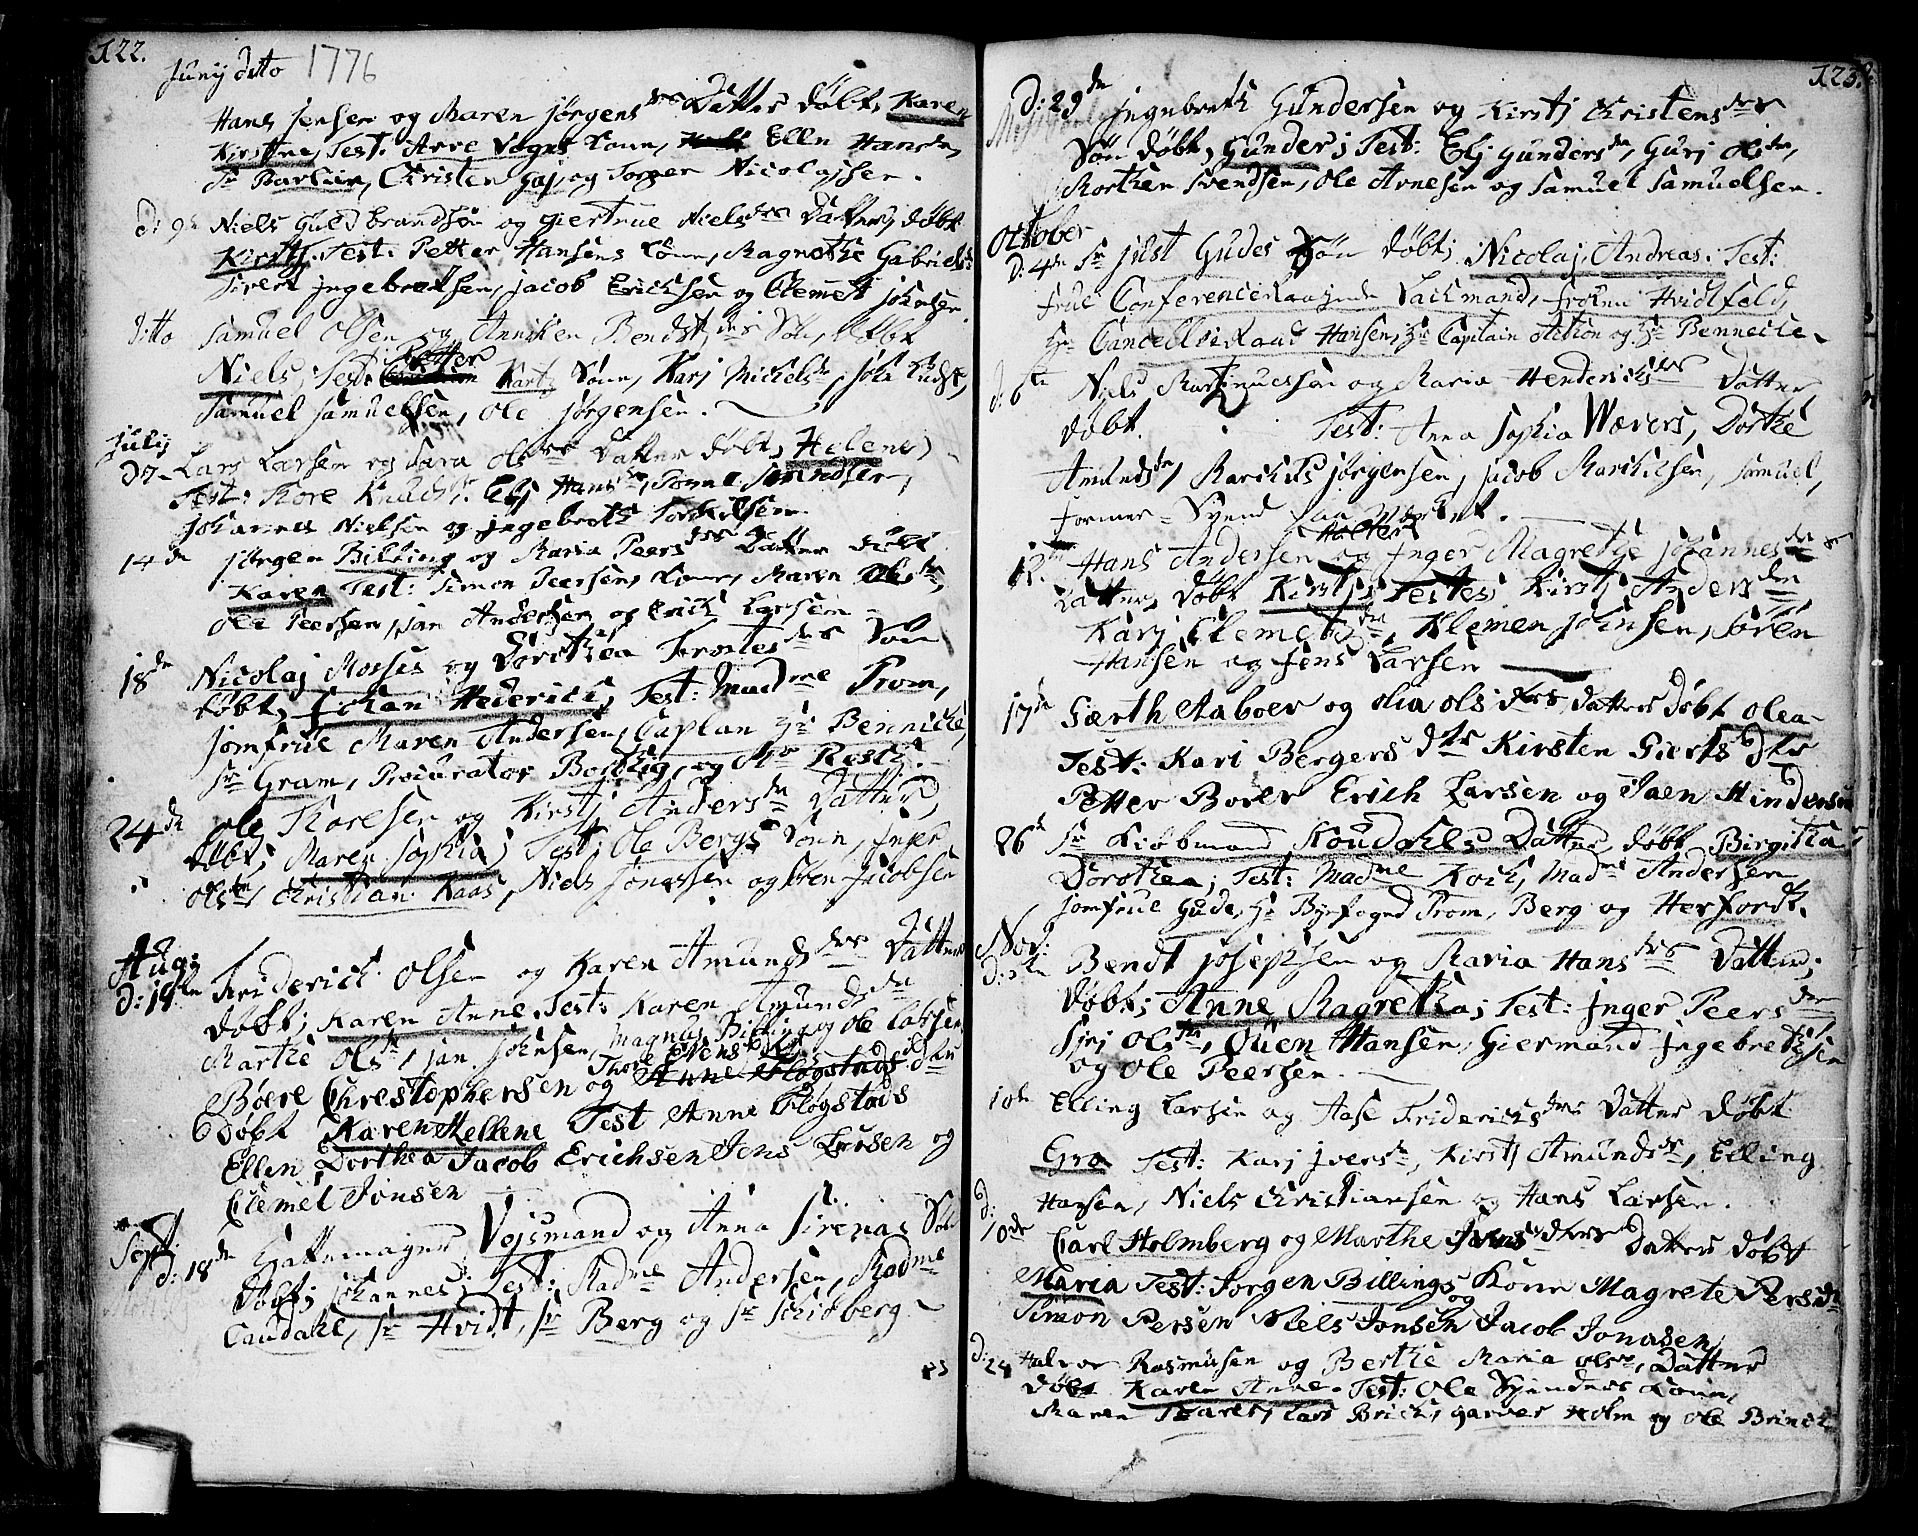 122.
Junij dito 1776
Hans Jensen og Maren Jørgens drs Datter døbt, Karen
Kirstine, Test: Arve Vogns Konn, Ellen Hansdn,
Sr Barlien, Christen Gaj, og Torger Nicolajsen.
d: 9n Niels Guldbrandsøn og Giertrue Niels drs Datter, døbt
Kirstj. Test: Petter Hansens Konn, Magrethe Gabriels
Sivert Ingebretsen, Jacob Erichsen og Clemet Johnsen
ditto Samuel Olsen og Anniken Bendts drs Søn, døbt
Niels, Test: Petter Konn, Karj Mickelsdn,
Samuel Samuelsen, Ole Jørgensen.
Julij
D7- Lars Larsen og Sara Ols drs Datter døbt, Helene,
Test: Thore Knuds. Elj Hansdn,
Johannes Nielsen og Ingebreth Torkelsen.
14de Jørgen Billing og Maria Peers drs Datter døbt
Karen Test: Simon Peersens Konn, Maren Olsdn,
Ole Peersen, Jan Andersen og Erick Larsen
18de Nicolaj Moses og Dorothea Torstes drs Søn
døbt, Johan Hederich, Test: Madme Prom,
Jomfrue Maren Andersen, Caplan Hr Bennicke,
Sr Gram, Procurator Bothig, og Mr Resch.
24de Ole Thoresen og Kirstj Anders dn Datter,
døbt; Maren Sophia; Test: Ole Bergs Konn, Inger
Olsdn, Christian Kaas, Niels Jonassen og Søren Jacobsen
Aug:
d: 14de Friderich Olsen og Karen Amunds drs Datter
døbt; Karen Anne. Test: Karen Amunds dn
Marthe Olsdn, Jan Johnsen, Magnus Billing og Ole Larsen
Børe Chrestophersen og Thore Evens Anne Fløgstads
døbt Karen Hellene Test Anne Fløgstads
Ellen Dorthea Jacob Erichsen Jens Larsen og
Clemet Jonsen
Sept:
d: 18de Hattemager Vejsmand og Anna Sirenas Søn
døbt; Johannes; Test: Madme Andersen, Madme
Caudahl, Sr Hvidt, Sr Berg og Sr Schiøberg
123.
D: 29de Ingebreth Gundersen og Kirstj Christens drs
Søn døbt, Gunder; Test: Elj Gundersdn, Gurj Olsdn,
Morthen Svendsen, Ole Arnesen og Samuel Samuelsen.
October
D: 4de Sr Just Gudes Søn døbt; Nicolaj Andreas. Test:
Frue Conferenceraadinde Lachmand, Frøken Hvidtfeld,
Hr Cancellieraad Hansen, Hr Captain og Hr Bennicke
d: 6te Niels Martinuessen og Maria Hendrichs drs Datter
døbt. Test: Anna Sophia Wævers, Dorthe
Amundsdn, Marickus Jørgensen, Jacob Marickisen, Samuel,
Former-Svend paa Værket.
12. Hans Andersen Holter og Inger Magrethe Johannes dn
Datter, døbt Kirstj; Testes; Kirstj Anders dn
Karj Clemets dn, Klemen Johnsen, Søren
Hansen og Jens Larsen
17de Gærth Aaboer og Olia Ols drs Datter døbt Olea
Test: Kari Bergers dtr Kirsten Gierts dtr
Petter Borer Erich Larsen og Jaen Hindersen
26d Sr Kiøbmand Houdahls Datter døbt Birgitha
Dorothea; Test: Madme Koch, Madme Andersen
Jomfrue Gude, Hr Byefoged Prom, Berg og Herfordt.
Nov:
D: 3de Bendt Josephsen og Maria Hans drs Datter;
døbt; Anne Magretha; Test: Inger Peers dn
Sirj Olsdn, Ouen Hansen, Giermand Ingebrethsen
og Ole Peersen.
10de Elling Larsen og Aase Friderichs drs Datter døbt
Gro Test: Karj Iversdn, Kirstj Amundsdn, Elling
Hansen, Niels Christiansen og Hans Larsen.
d: 10de Carl Holmberg og Marthe Jaens dters Datter døbt
Maria Test: Jorgen Billings Kone Magrete Persdt
Simon Persen Niels Jonsen og Jacob Jonasen
d: 24 Halvor Rasmusen og Berthe Maria Olsdn, Datter
døbt Karen Anne. Test: Ole Svendsens Konn,
Maren Lars Brich, Garver Holm og Ole Brinch